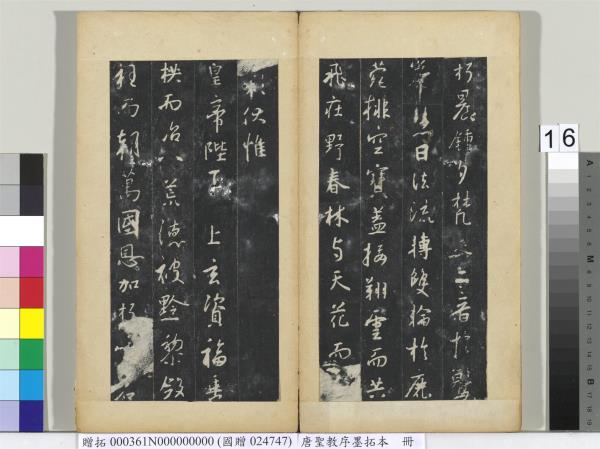 於晨鍾夕梵交二音於鷲
峯慧日法流轉雙輪於鹿
苑排空寶蓋接翔雲而共
飛莊野春林與天花而
彩伏惟
皇帝陛下上玄資福垂
拱而治八荒德被黔黎斂
衽而朝萬國恩加朽
16
贈拓 000361N000000000 (國贈 024747) 唐聖教序墨拓本 冊